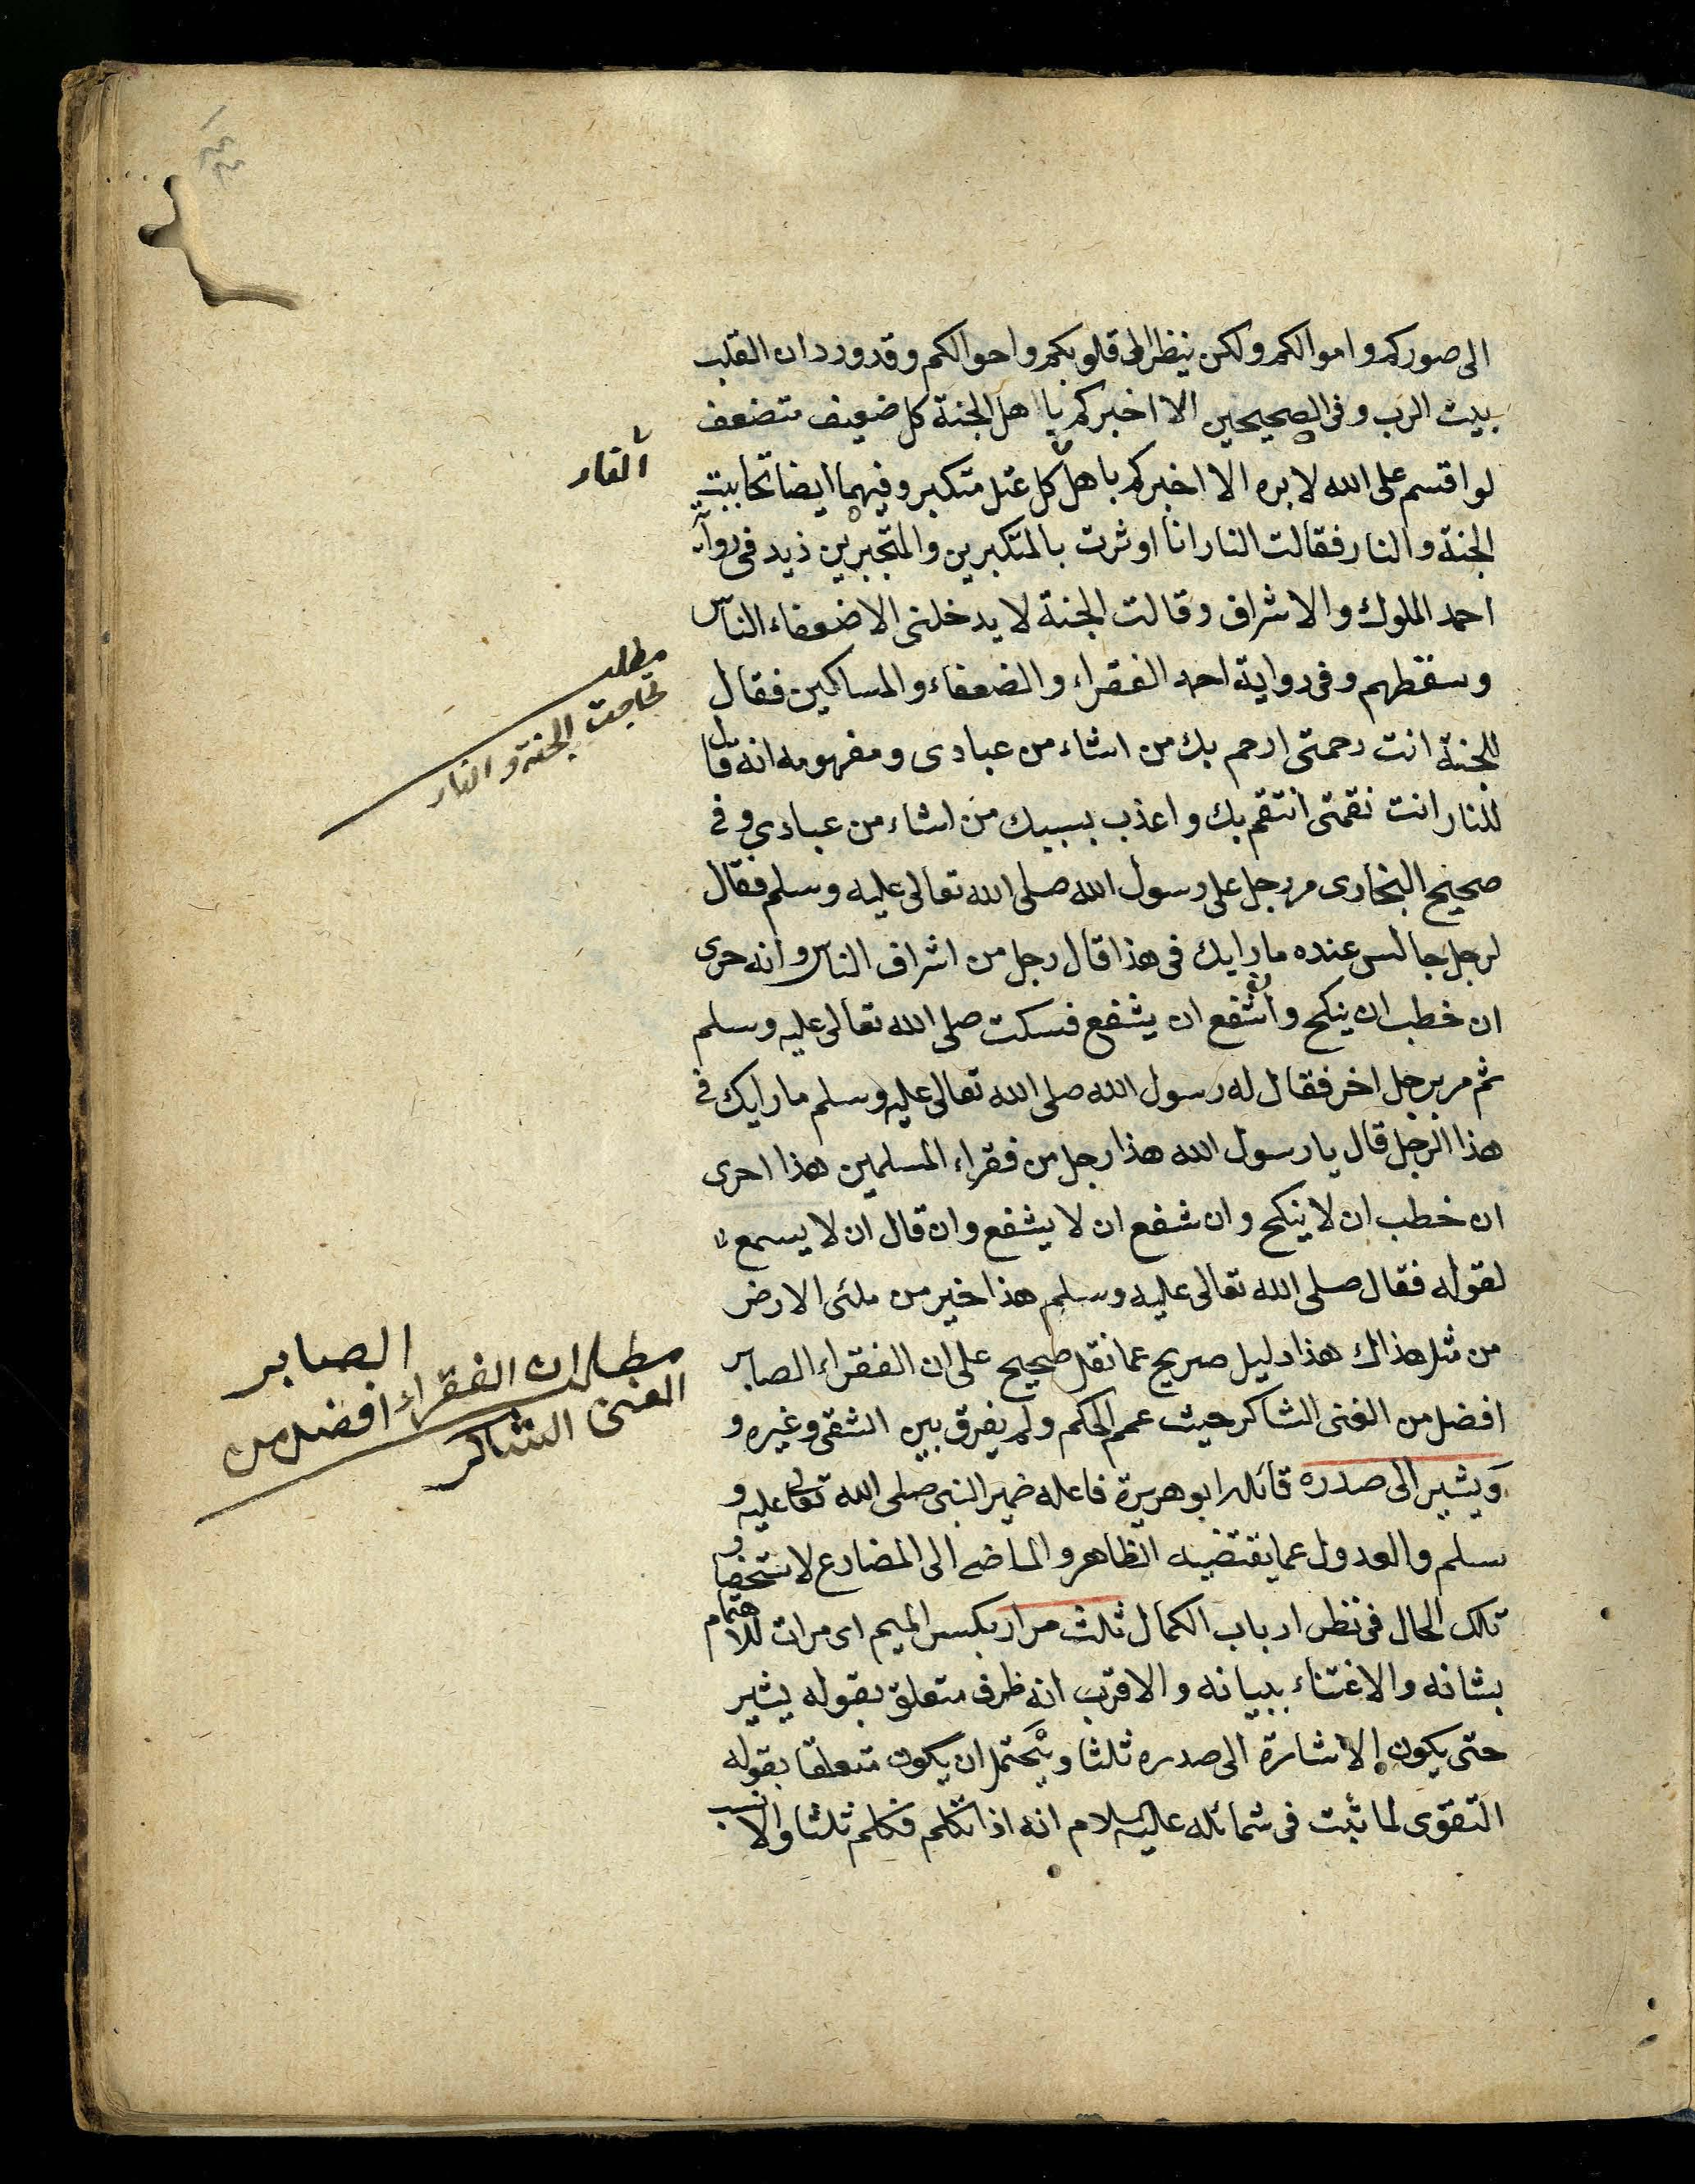 الى صوركم واموالكم ولكن ينظر الى قلوبكم واحوالكم وقد ورد ان القلب
بيت الرب وفى الصحيحين الا اخبركم با هل الجنة كل ضعيف متضعف
لو اقسم على الله لابره الا اخبركم باهل كل عتل متكبر وفيهما ايضا تحاببت
النار
الجنة والنار فقالت النار انا اوثرت بالمتكبرين والمتجبرين زيد فى رواية
احمد الملوك والاشراف وقالت الجنة لا يدخلنى الا ضعفاء الناس
وسقطهم وفى رواية احمد الفقراء والضعفاء والمساكين فقال
مطلب
تحاجت الجنة والنار
للجنة انت رحمتى ارحم بك من اشاء من عبادى ومفهومه انه قال
للنار انت نقمتى انتقم بك واعذب بسببك من اشاء من عبادى وفى
صحيح البخارى مر رجل على رسول الله صلى الله تعالى عليه وسلم فقال
لرجل جالس عنده ما رايك فى هذا قال رجل من اشراف الناس وانه حرى
ان خطب ان ينكح وان شفع ان يشفع فسكت صلى الله تعالى عليه وسلم
ثم مر برجل اخر فقال له رسول الله صلى الله تعالى عليه وسلم ما رايك فى
هذا الرجل قال يا رسول الله هذا رجل من فقراء المسلمين هذا احرى
ان خطب ان لا ينكح وان شفع ان لا يشفع وان قال ان لا يسمع
لقوله فقال صلى الله تعالى عليه وسلم هذا خير من ملئى الارض
من مثل هذاك هذا دليل صريح عما نقل صحيح على ان الفقراء الصابر
مطلب ان الفقراء الصابر افضل من
الغنى الشاكر
افضل من الغنى الشاكر حيث عمم الحكم ولم يفرق بين الشقى وغيره و
ويشير الى صدره قائله ابو هريرة فاعله ضمير النبى صلى الله تعالى عليه و
سلم والعدول عما يقتضيه الظاهر والماضى الى المضارع لاستحضار
تلك الحال فى نظر ارباب الكمال ثلث مرار بكسر الميم اى مرات للاهتمام
بشانه والاغتناء ببيانه والاقرب انه ظرف متعلق بقوله يشير
حتى يكون الاشارة الى صدره ثلثا ويحتمل ان يكون متعلقا بقوله
التقوى لما ثبت فى شمائله عليه السلام انه اذا تكلم تكلم ثلثا والانسب